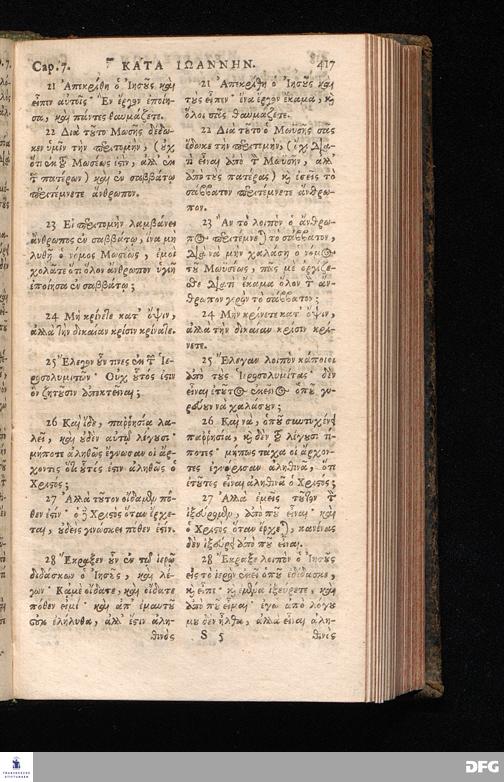 Cap. 7. ΚΑΤΑ ΙΩΑΝΝΗΝ. 417
21 Ἀπεκρίθη ὁ Ἰησοῦς καὶ
εἶπεν αὐτοῖς· Ἓν ἔργον ἐποίη-
σα, καὶ πάντες θαυμάζετε.
22 Διὰ τοῦτο Μωσῆς δέδω-
κεν ὑμῖν τὴν περιτομὴν, (οὐχ
ὅτι ἐκ τοῦ Μωσέως ἐςὶν, ἀλλ' ἐκ
τῶν πατέρων) καὶ ἐν σαββάτῳ
περιτέμνετε ἄνθρωπον.
23 Εἰ περιτομὴν λαμβάνει
ἄνθρωπος ἐν σαββάτῳ, ἵνα μὴ
λυθῇ ὁ νόμος Μωσέως, ἐμοὶ
χολᾶτε ὅτι ὅλον ἄνθρωπον ὑγιῆ
ἐποίησα ἐν σαββάτῳ;
24 Μὴ κρίνετε κατ' ὄψιν,
ἀλλὰ τὴν δικαίαν κρίσιν κρίνατε.
25 Ἔλεγον οὖν τινες ἐκ τῶν Ἱε-
ροσολυμιτῶν· Οὐχ οὗτός ἐςιν
ὃν ζητοῦσιν ἀποκτεῖναι;
26 Καὶ ἴδε, παῤῥησίᾳ λα-
λεῖ, καὶ οὐδὲν αὐτῷ λέγουσι·
μήποτε ἀληθῶς ἔγνωσαν οἱ ἄρ-
χοντες ὅτι οὗτός ἐςιν ἀληθῶς ὁ
Χριςός;
27 Ἀλλὰ τοῦτον οἴδαμεν πό-
θεν ἐςίν· ὁ δὲ Χριςὸς ὅταν ἔρχε-
ται, οὐδεὶς γινώσκει πόθεν ἐςίν.
28 Ἔκραξεν οὖν ἐν τῷ ἱερῷ
διδάσκων ὁ Ἰησοῦς, καὶ λέ-
γων· Κἀμὲ οἴδατε, καὶ οἴδατε
πόθεν εἰμί· καὶ ἀπ' ἐμαυτοῦ
οὐκ ἐλήλυθα, ἀλλ' ἔςιν ἀλη-
θινὸς
21 Ἀπεκρίθη ὁ Ἰησοῦς καὶ
τοὺς εἶπεν· ἕνα ἔργον ἔκαμα, καὶ
ὅλοι σας θαυμάζετε.
22 Διὰ τοῦτο ὁ Μωυσῆς σᾶς
ἔδωκε τὴν περιτομὴν, (ὄχι δια-
τὶ εἶναι ἀπὸ τοῦ Μωυσῆν, ἀλλ'
ἀπὸ τοὺς πατέρας) καὶ ἐσεῖς τὸ
σάββατον περιτέμνετε ἄνθρω-
πον.
23 Ἂν τὸ λοιπὸν ὁ ἄνθρω-
πος περιτέμνεται τὸ σάββατον,
διὰ νὰ μὴν χαλάσῃ ὁ νόμος
τοῦ Μωυσέως, πῶς μὲ ὀργίζε-
σθε διατὶ ἔκαμα ὅλον τὸν ἄν-
θρωπον γερὸν τὸ σάββατον;
24 Μὴν κρίνετε κατ' ὄψιν,
ἀλλὰ τὴν δικαίαν κρίσιν κρί-
νετε.
25 Ἔλεγαν λοιπὸν κάποιοι
ἀπὸ τοὺς Ἱεροσολυμίτας· δὲν
εἶναι ἐτοῦτος ἐκεῖνος ὁποῦ γυ-
ρεύουν νὰ χαλάσουν;
26 Καὶ νὰ, ὁποῦ συντυχένει
παῤῥησίᾳ, καὶ δὲν τοῦ λέγουσι τί-
ποτις· μήπως τάχα οἱ ἄρχον-
τες ἐγνώρισαν ἀληθινὰ, ὅτι
ἐτοῦτος εἶναι ἀληθινὰ ὁ Χριςός;
27 Ἀλλὰ ἐμεῖς τοῦτον τὸν
ἐξεύρομεν, ἀπὸ ποῦ εἶναι· καὶ
ὁ Χριςὸς ὅταν ἔρχεται, κανένας
δὲν ἐξεύρει ἀπὸ ποῦ εἶναι.
28 Ἔκραξε λοιπὸν ὁ Ἰησοῦς
εἰς τὸ ἱερὸν ἐκεῖ ὁποῦ ἐδίδασκε,
καὶ εἶπε· καὶ ἐμένα ἐξεύρετε, καὶ
ἀπὸ ποῦ εἶμαι· ἐγὼ ἀπὸ λόγου
μου δὲν ἦλθα, ἀλλὰ εἶναι ἀλη-
S 5 θινὸς
FRANCKESCHE
STIFTUNGEN
DFG